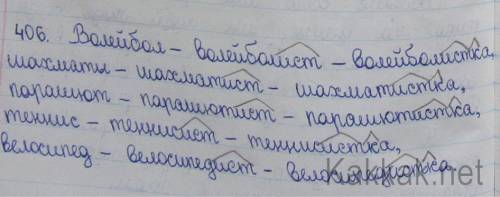 406. Волейбол - волейболист - волейболистка,
шахматы - шахматист - шахматистка,
парашют - парашютист - парашютистка,
теннис - теннисист - теннисистка,
велосипед - велосипедист - велосипедистка.
Kakkak.net